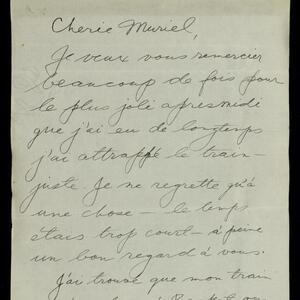 Cherie Muriel,
Je veux vous remercier
beaucoup de fois pour
le plus joli apresmidi
que j'ai eu de longtemps
j'ai attrappé le train—
juste. Je ne regrette qu'à
une chose — le temps
étais trop court — à peine
un bon regard à vous.
J'ai trouvé que mon train